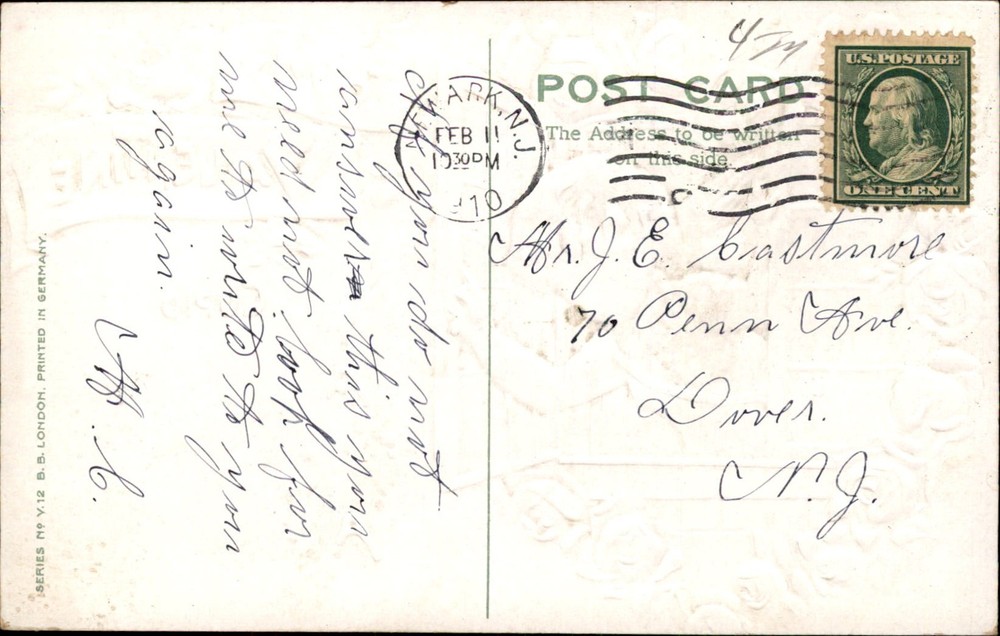 4 m
U.S. POSTAGE
ONE CENT
POST CARD
The Address to be written
on this side.
NEWARK, N.J.
FEB 11
10 30 PM
1910
Mr. J. E. Castmore
70 Penn Ave.
Dover.
N. J.
If you do not
answer this you
need not look for
me to write to you
again.
H. C.
SERIES No V. 12 B. B. LONDON. PRINTED IN GERMANY.